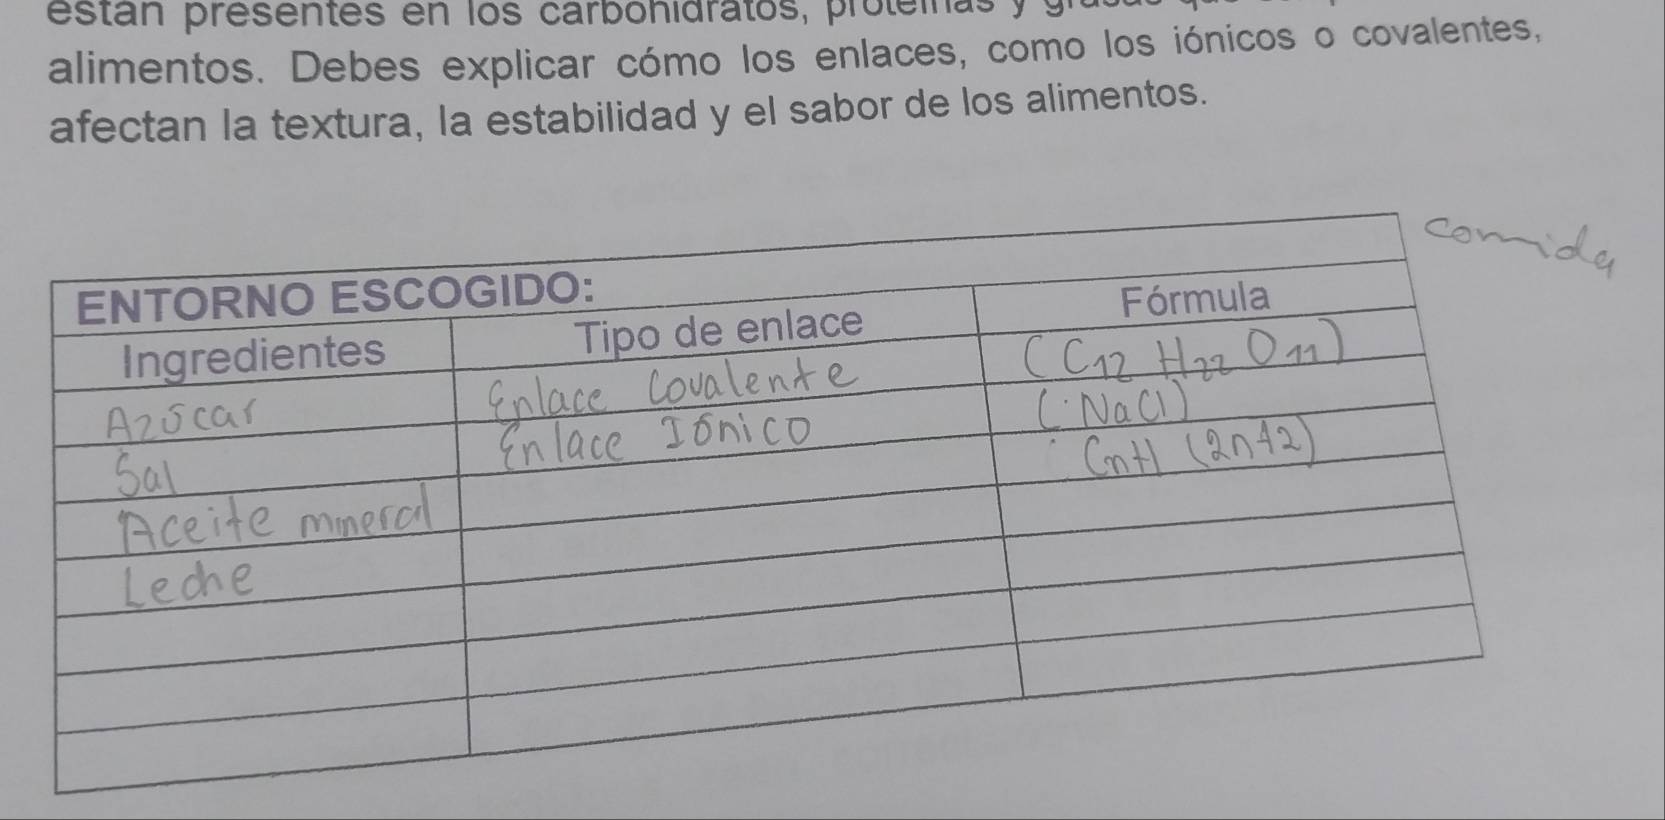 están presentes en los carbohidratos, proteínas y
alimentos. Debes explicar cómo los enlaces, como los iónicos o covalentes,
afectan la textura, la estabilidad y el sabor de los alimentos.
comida
ENTORNO ESCOGIDO:
Ingredientes Tipo de enlace Fórmula
Azúcar Enlace Covalente (C12 H22 O11)
Sal Enlace Iónico (NaCl)
Aceite mineral CnH (2n+2)
Leche